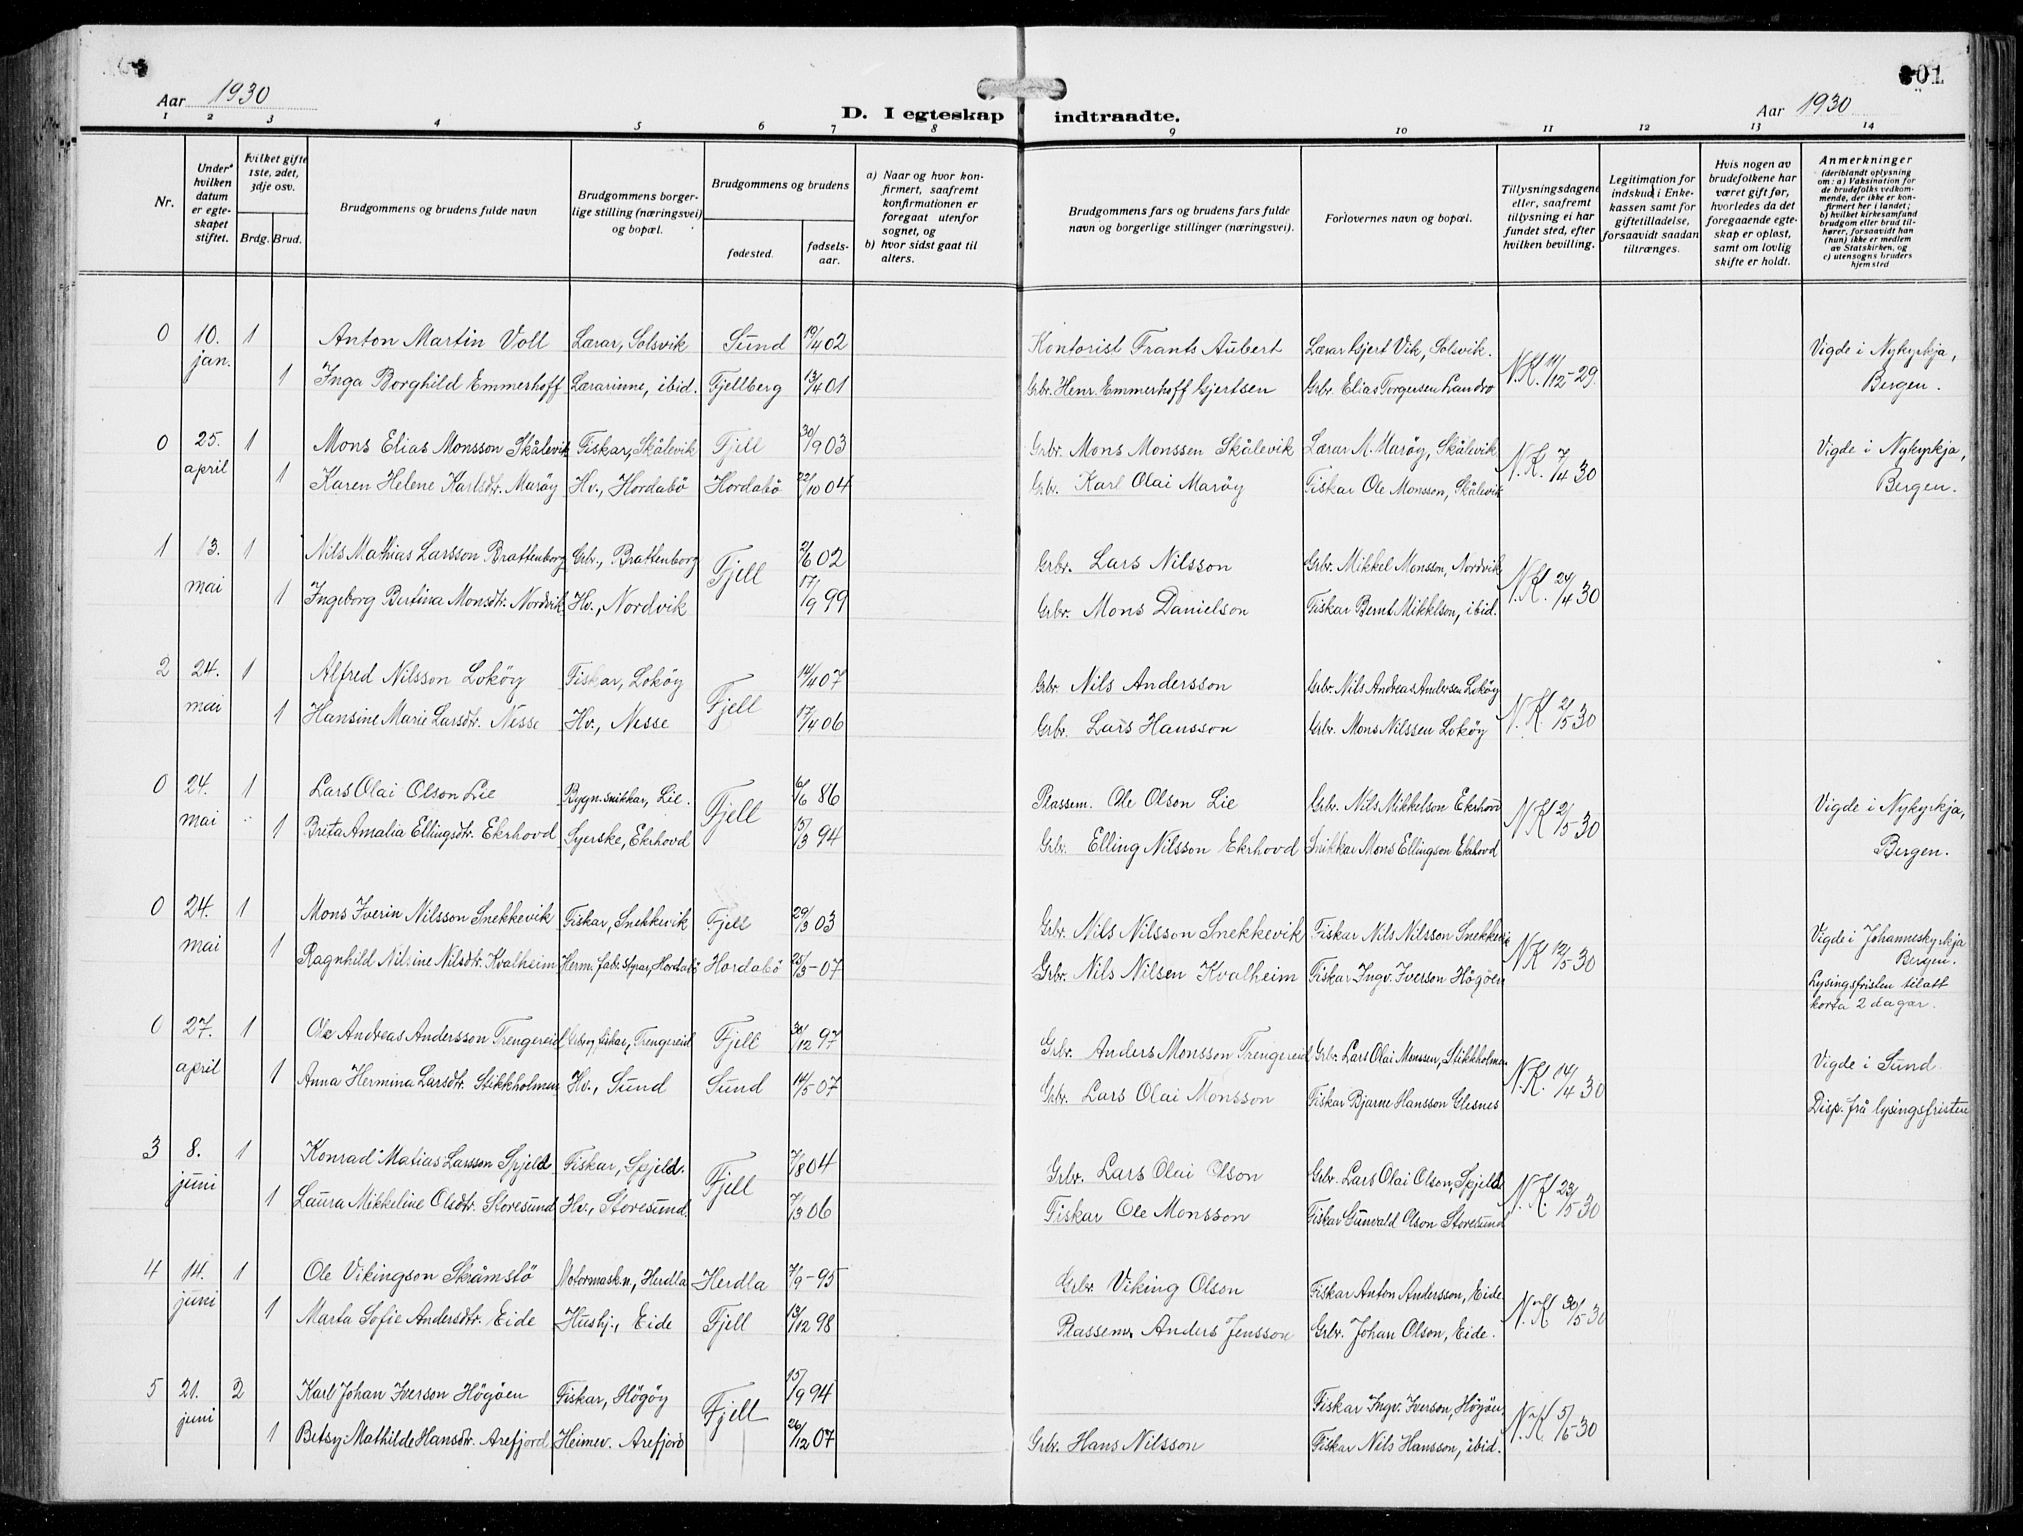 Aar 1930
D. I egteskap indtraadte.
Aar 1930
01
1 2 3 4 5 6 7 8 9 10 11 12 13 14
Nr.
Under hvilken datum er egteskapet stiftet.
Hvilket gifte 1ste, 2det, 3dje osv.
Brdg. Brud.
Brudgommens og brudens fulde navn
Brudgommens borgerlige stilling (næringsvei) og bopæl.
Brudgommens og brudens
fødested.
fødselsaar.
a) Naar og hvor konfirmert, saafremt konfirmationen er foregaat utenfor sognet, og
b) hvor sidst gaat til alters.
Brudgommens fars og brudens fars fulde navn og borgerlige stillinger (næringsvei).
Forlovernes navn og bopæl.
Tillysningsdagene eller, saafremt tillysning ei har fundet sted, efter hvilken bevilling.
Legitimation for indskud i Enkekassen samt for giftetilladelse, forsaavidt saadan tiltrænges.
Hvis nogen av brudefolkene har været gift før, hvorledes da det foregaaende egteskap er opløst, samt om lovlig skifte er holdt.
Anmerkninger (deriblandt oplysning om: a) Vaksination for de brudefolks vedkommende, der ikke er konfirmert her i landet; b) hvilket kirkesamfund brudgom eller brud tilhører, forsaavidt han (hun) ikke er medlem av Statskirken, og c) utensogns bruders hjemsted
0 10. jan. 1 Anton Martin Voll Lærar, Solsvik Sund 19/4 02 Kontorist Frants Aubert Lærar Gjert Vik, Solsvik. N.K. 11/12-29. Vigde i Nykyrkja, Bergen.
1 Inga Borghild Emmerhoff Lærarinne, ibid. Fjellberg 13/4 01 Grbr. Henr. Emmerhoff Gjertsen Grbr. Elias Torgersen Landro
0 25. april 1 Mons Elias Monsson Skålevik Fiskar, Skålevik Fjell 30/9 03 Grbr. Mons Monssen Skålevik Lærar A. Marøy, Skålevik N.K. 7/4 30 Vigde i Nykyrkja, Bergen.
1 Karen Helene Karlsdtr. Marøy Hv., Hordabö Hordabö 22/10 04 Grbr. Karl Olai Marøy Fiskar Ole Monsson, Skålevik
1 13. mai 1 Nils Mathias Larsson Brattenborg Grbr., Brattenborg Fjell 2/6 02 Grbr. Lars Nilsson Grbr. Mikkel Monsson, Nordvik N.K. 24/4 30
1 Ingeborg Bertina Monsdtr. Nordvik Hv., Nordvik 17/9 99 Grbr. Mons Danielson Fiskar Bernt Mikkelson, ibid.
2 24. mai 1 Alfred Nilsson Loköy Fiskar, Loköy Fjell 14/4 07 Grbr. Nils Andersson Grbr. Nils Andreas Andersen Loköy N.K. 2/5 30
1 Hansine Marie Larsdtr. Nesse Hv., Nesse 17/4 06 Grbr. Lars Hansson Grbr. Mons Nilssen Loköy
0 24. mai 1 Lars Olai Olson Lie Bygn. snikkar, Lie. Fjell 6/6 86 Plassem. Ole Olson Lie Grbr. Nils Mikkelson Ekrhovd N.K. 2/5 30 Vigde i Nykyrkja, Bergen.
1 Breta Amalia Ellingsdtr. Ekrhovd Syerske, Ekrhovd 15/3 94 Grbr. Elling Nilsson Ekrhovd Snikkar Mons Ellingson Ekrhovd
0 24. mai 1 Mons Iverin Nilsson Snekkevik Fiskar, Snekkevik Fjell 29/3 03 Grbr. Nils Nilsson Snekkevik Fiskar Nils Nilsson Snekkevik N.K. 12/5 30 Vigde i Johanneskyrkja Bergen.
1 Ragnhild Nilsine Nilsdtr. Kvalheim Herm. fabr. Hordabö Hordabö 25/3-07 Grbr. Nils Nilsen Kvalheim Fiskar Ingv. Iverson Högöen Lysingsfristen tilatt korta 2 dagar.
0 27. april 1 Ole Andreas Andersson Trengereid Grbr. og fiskar, Trengereid Fjell 30/12 97 Grbr. Anders Monsson Trengereid Grbr. Lars Olai Monssen, Stikkholmen N.K. 14/4 30 Vigde i Sund.
1 Anna Hermina Larsdtr. Stikkholmen Hv., Sund Sund 14/5-07 Grbr. Lars Olai Monsson Fiskar Bjarne Hansson Glesnes Disp. frå lysingsfristen
3 8. juni 1 Konrad Matias Larsson Spjeld Fiskar, Spjeld. Fjell 7/8 04 Grbr. Lars Olai Olson Grbr. Lars Olai Olson, Spjeld N.K. 23/5-30
1 Laura Mikkeline Olsdtr. Storesund Hv., Storesund. 7/3 06 Fiskar Ole Monsson Fiskar Gunvald Olson Storesund
4 14. juni 1 Ole Vikingson Skåmstö Motormaskn, Herdla Herdla 7/9-95 Grbr. Viking Olson Fiskar Anton Andersson, Eide N.K. 30/5 30
1 Marta Sofie Andersdtr. Eide Hushj., Eide Fjell 13/12 98 Plassem. Anders Jensson Grbr. Johan Olson, Eide.
5 21. juni 2 Karl Johan Iverson Högöen Fiskar, Högöy Fjell 15/9 94 Fiskar Ingv. Iverson, Högöen N.K. 5/6-30
1 Betsy Mathilde Hansdtr. Arefjord Heimev. Arefjord 26/12 07 Grbr. Hans Nilsson Fiskar Nils Hansson, ibid.